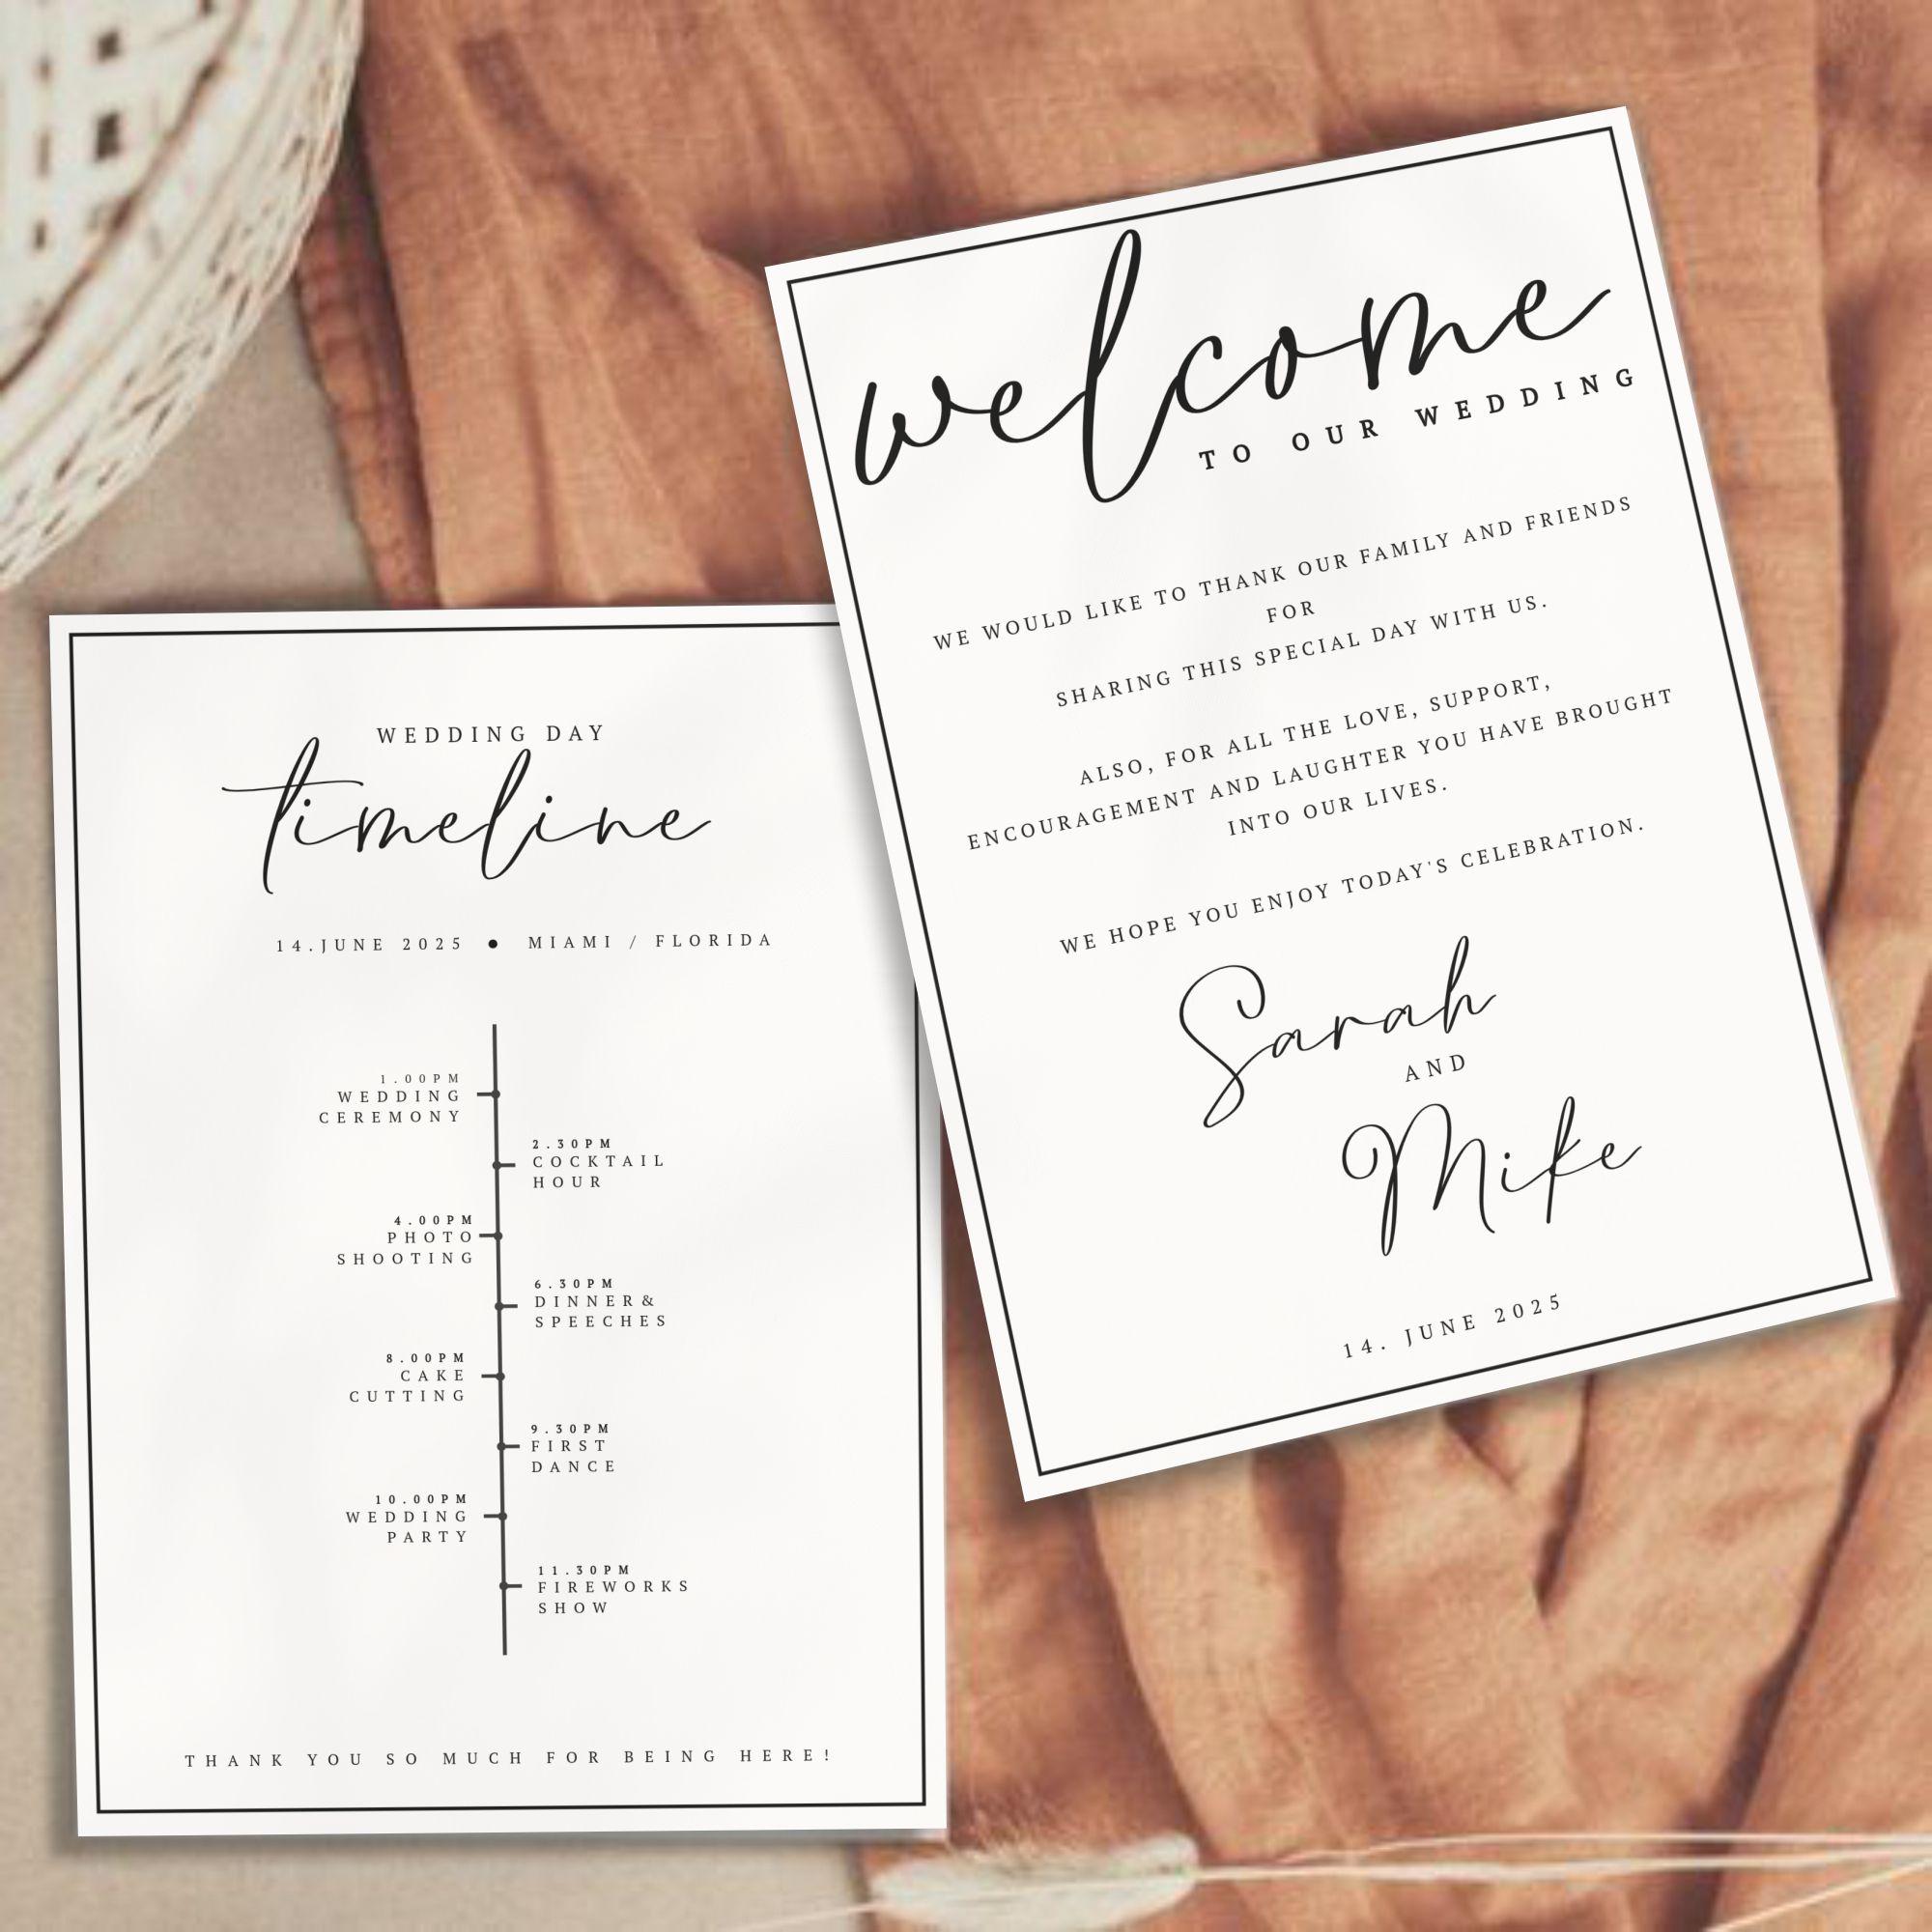 WEDDING DAY
timeline
14.JUNE 2025 ● MIAMI / FLORIDA
1.00PM
WEDDING
CEREMONY
2.30PM
COCKTAIL
HOUR
4.00PM
PHOTO
SHOOTING
6.30PM
DINNER&
SPEECHES
8.00PM
CAKE
CUTTING
9.30PM
FIRST
DANCE
10.00PM
WEDDING
PARTY
11.30PM
FIREWORKS
SHOW
THANK YOU SO MUCH FOR BEING HERE!
welcome
TO OUR WEDDING
WE WOULD LIKE TO THANK OUR FAMILY AND FRIENDS
FOR
SHARING THIS SPECIAL DAY WITH US.
ALSO, FOR ALL THE LOVE, SUPPORT,
ENCOURAGEMENT AND LAUGHTER YOU HAVE BROUGHT
INTO OUR LIVES.
WE HOPE YOU ENJOY TODAY'S CELEBRATION.
Sarah
AND
Mike
14. JUNE 2025